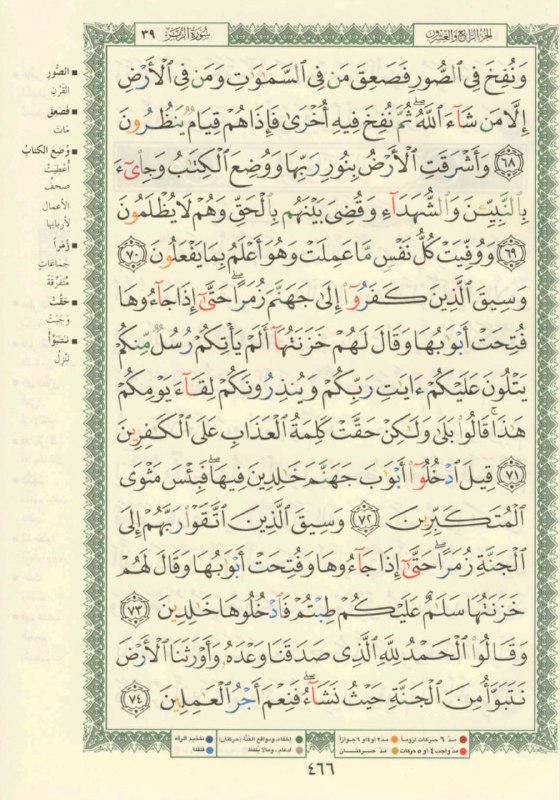 الجزء الرابع والعشرون
سورة الزمر ٣٩
وَنُفِخَ فِى ٱلصُّورِ فَصَعِقَ مَن فِى ٱلسَّمَـٰوَٰتِ وَمَن فِى ٱلْأَرْضِ
إِلَّا مَن شَآءَ ٱللَّهُ ۖ ثُمَّ نُفِخَ فِيهِ أُخْرَىٰ فَإِذَا هُمْ قِيَامٌ يَنظُرُونَ
٦٨ وَأَشْرَقَتِ ٱلْأَرْضُ بِنُورِ رَبِّهَا وَوُضِعَ ٱلْكِتَـٰبُ وَجِا۟ىٓءَ
بِٱلنَّبِيِّـۧنَ وَٱلشُّهَدَآءِ وَقُضِىَ بَيْنَهُم بِٱلْحَقِّ وَهُمْ لَا يُظْلَمُونَ
٦٩ وَوُفِّيَتْ كُلُّ نَفْسٍ مَّا عَمِلَتْ وَهُوَ أَعْلَمُ بِمَا يَفْعَلُونَ ٧٠
وَسِيقَ ٱلَّذِينَ كَفَرُوٓا۟ إِلَىٰ جَهَنَّمَ زُمَرًا ۖ حَتَّىٰٓ إِذَا جَآءُوهَا
فُتِحَتْ أَبْوَٰبُهَا وَقَالَ لَهُمْ خَزَنَتُهَآ أَلَمْ يَأْتِكُمْ رُسُلٌ مِّنكُمْ
يَتْلُونَ عَلَيْكُمْ ءَايَـٰتِ رَبِّكُمْ وَيُنذِرُونَكُمْ لِقَآءَ يَوْمِكُمْ
هَـٰذَا ۚ قَالُوا۟ بَلَىٰ وَلَـٰكِنْ حَقَّتْ كَلِمَةُ ٱلْعَذَابِ عَلَى ٱلْكَـٰفِرِينَ
٧١ قِيلَ ٱدْخُلُوٓا۟ أَبْوَٰبَ جَهَنَّمَ خَـٰلِدِينَ فِيهَا ۖ فَبِئْسَ مَثْوَى
ٱلْمُتَكَبِّرِينَ ٧٢ وَسِيقَ ٱلَّذِينَ ٱتَّقَوْا۟ رَبَّهُمْ إِلَى
ٱلْجَنَّةِ زُمَرًا ۖ حَتَّىٰٓ إِذَا جَآءُوهَا وَفُتِحَتْ أَبْوَٰبُهَا وَقَالَ لَهُمْ
خَزَنَتُهَا سَلَـٰمٌ عَلَيْكُمْ طِبْتُمْ فَٱدْخُلُوهَا خَـٰلِدِينَ ٧٣
وَقَالُوا۟ ٱلْحَمْدُ لِلَّهِ ٱلَّذِى صَدَقَنَا وَعْدَهُۥ وَأَوْرَثَنَا ٱلْأَرْضَ
نَتَبَوَّأُ مِنَ ٱلْجَنَّةِ حَيْثُ نَشَآءُ ۖ فَنِعْمَ أَجْرُ ٱلْعَـٰمِلِينَ ٧٤
■ الصُّورِ
القَرْنِ
■ فصعق
مَاتَ
■ وُضِعَ الكِتابُ
أُعْطِيَتْ
صحفُ
الأعمال
لأربابها
■ زُمَراً
جَمَاعَاتٍ
مُتَفَرِّقَةً
■ حَقَّتْ
وَجَبَتْ
■ نَتَبَوَّأُ
نَنْزِلُ
مدّ ٦ حركات لزوماً
مدّ ٢ أو ٤ أو ٦ جوازاً
إخفاء، ومواقع الغُنَّة (حركتان)
تفخيم الراء
مدّ واجب ٤ أو ٥ حركات
مدّ حركتان
ادغام ، وما لا يُلفظ
قلقلة
٤٦٦